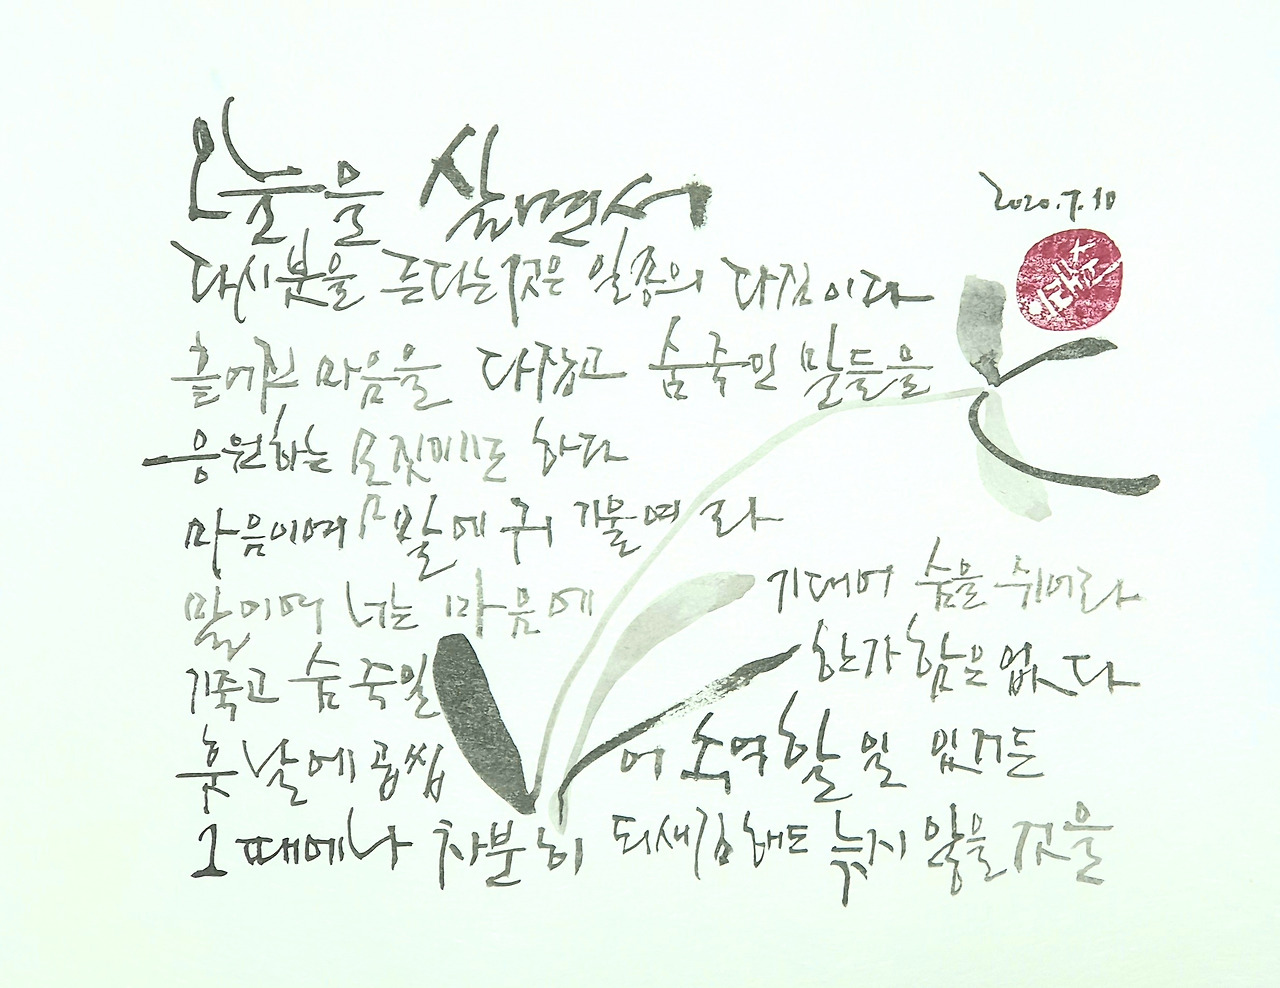 오늘을 살면서
2020.7.10
다시 붓을 든다는 것은 일종의 다짐이다
흩어진 마음을 다잡고 숨죽인 말들을
응원하는 몸짓이기도 하다
마음이여 말에 귀 기울여라
말이여 너는 마음에 기대어 숨을 쉬어라
기죽고 숨죽일 한가함은 없다
훗날에 곱씹어 추억할 일 있거든
그때에나 차분히 되새김해도 늦지 않을 것을